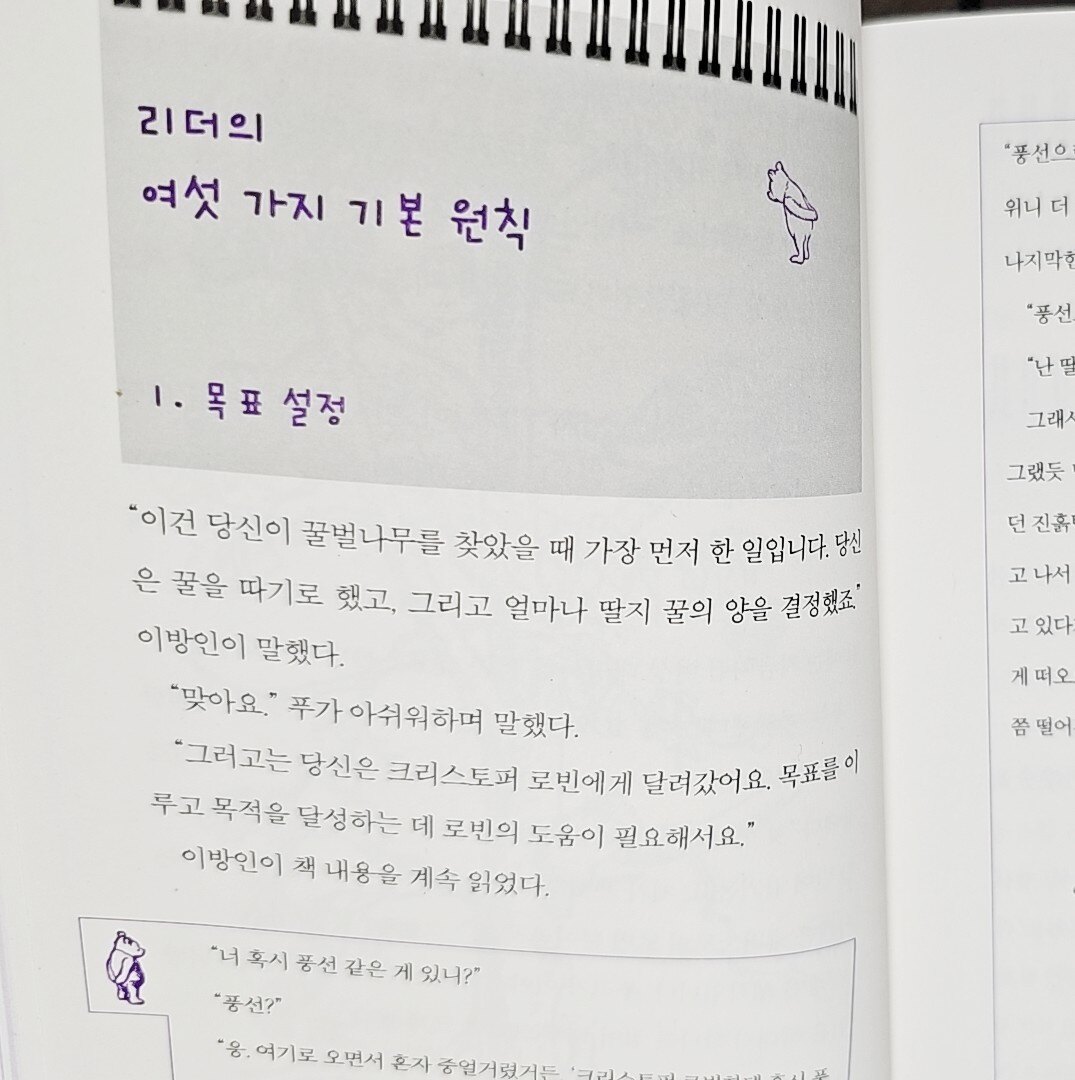 리더의
여섯 가지 기본 원칙
1. 목표 설정
“이건 당신이 꿀벌나무를 찾았을 때 가장 먼저 한 일입니다. 당신
은 꿀을 따기로 했고, 그리고 얼마나 딸지 꿀의 양을 결정했죠.”
이방인이 말했다.
“맞아요.” 푸가 아쉬워하며 말했다.
“그러고는 당신은 크리스토퍼 로빈에게 달려갔어요. 목표를 이
루고 목적을 달성하는 데 로빈의 도움이 필요해서요.”
이방인이 책 내용을 계속 읽었다.
“너 혹시 풍선 같은 게 있니?”
“풍선?”
“응. 여기로 오면서 혼자 중얼거렸거든. ‘크리스토퍼 로빈한테 혹시 풍
“풍선으
위니 더
나지막한
“풍선
“난 딸
그래서
그랬듯
던 진흙
고 나서
고 있다
게 떠오
쯤 떨어